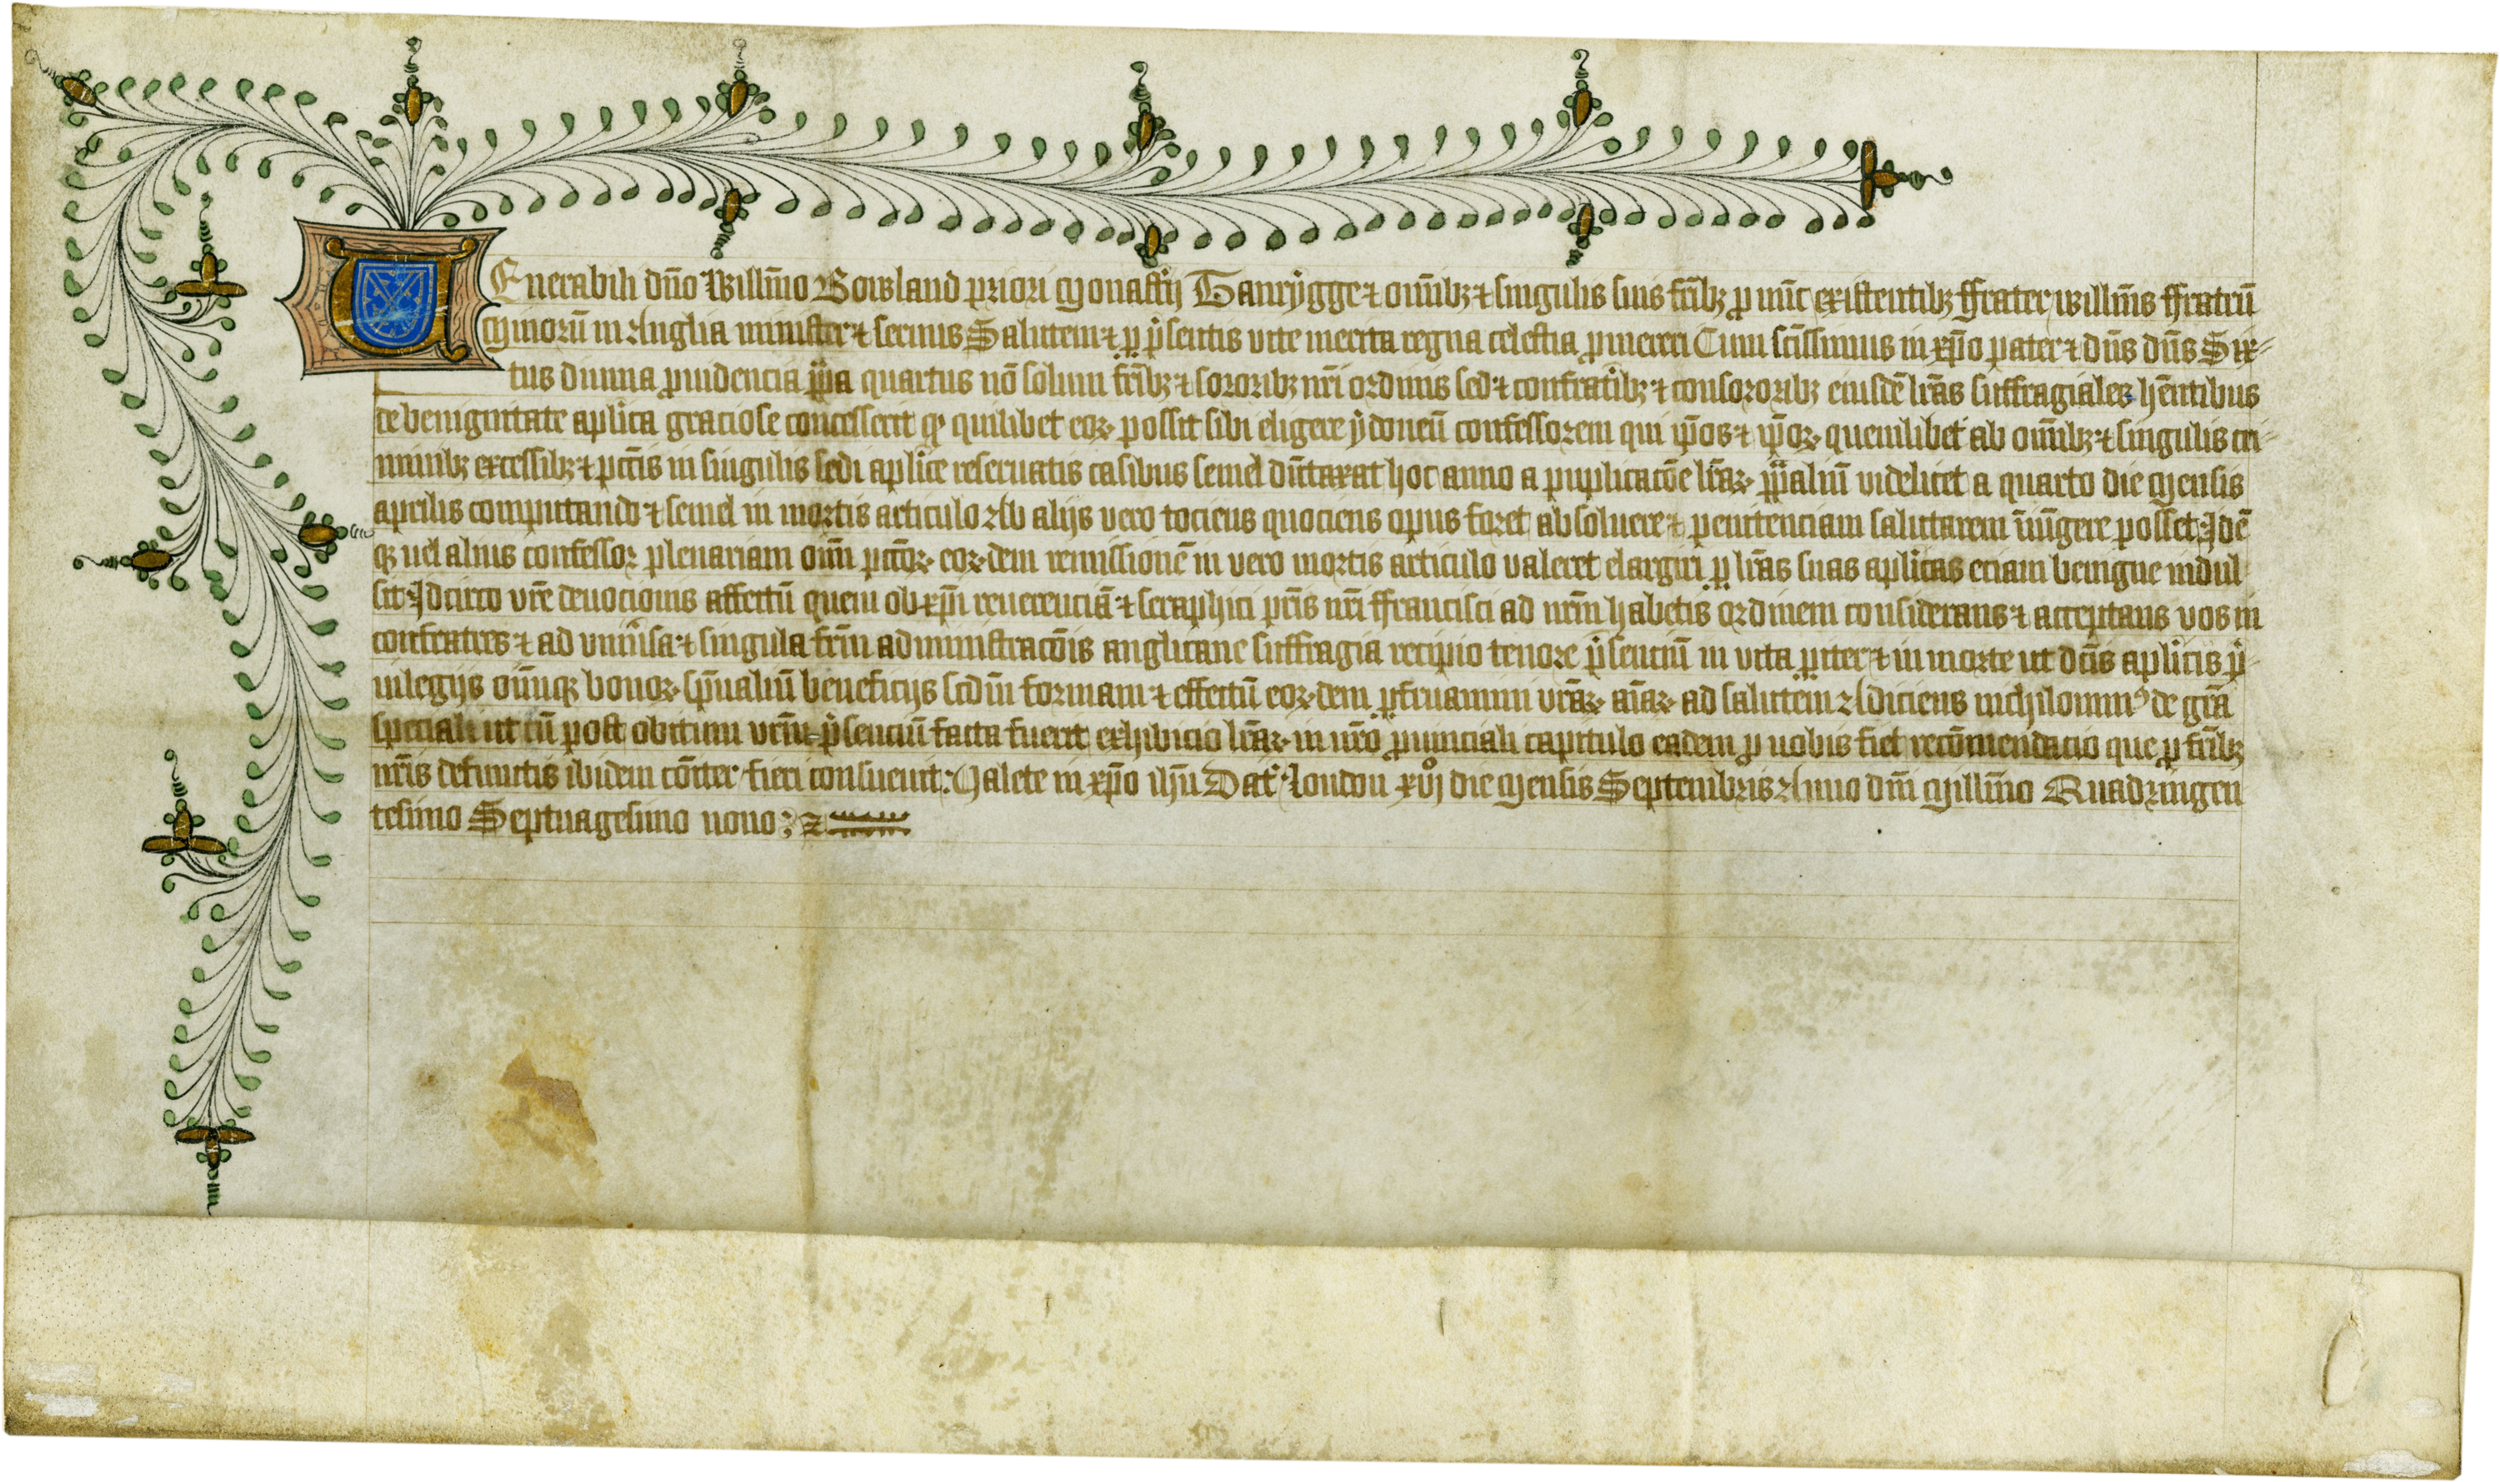 VEnerabili dn̄o Willm̄o Bowland priori Monastery Tanrygge ⁊ om̄ibꝫ ⁊ singulis suis fr̄ibꝫ ꝓ nūc existentibꝫ ffrater willm̄s ffratrū
Minorū in Anglia minister ⁊ seruus Salutem ⁊ ꝑ p̄sentis vite merita regna celestia ꝓmereri Cum sc̄issimus in xp̄o pater ⁊ dn̄s dn̄s Six⸗
tus diuina ꝓuidencia pp̄a quartus nō solum fr̄ibꝫ ⁊ sororibꝫ nr̄i ordinis sed ⁊ confratribꝫ ⁊ consororibꝫ eiusdē lr̄as suffragiales hēntibus
de benignitate apl̄ica graciose concesserit qͥ quilibet eoꝝ possit sibi eligere ydoneū confessorem qui ip̄os ⁊ ip̄oꝝ quemlibet ab om̄ibꝫ ⁊ singulis cri⸗
minibꝫ excessibꝫ ⁊ pctīs in singulis sedi apl̄ice reseruatis casibus semel dūtaxat hoc anno a puplicacōe lr̄aꝝ pp̄aliū videlicet a quarto die Mensis
aprilis computando ⁊ semel in mortis articulo Ab alijs vero tociens quociens opus foret absoluere ⁊ penitenciam salutarem iniūgere posset Idē
qꝫ uel alius confessor plenariam om̄ pctōꝝ eoꝝdem remissionē in vero mortis articulo valeret elargiri ꝑ lr̄as suas apl̄icas eciam benigne indul
sit Idcirco vr̄e deuocionis affectū quem ob xp̄i reuerenciā ⁊ seraphici pr̄is nr̄i ffrancisci ad nr̄m habetis ordinem considerans ⁊ acceptans vos in
confratres ⁊ ad vniūsa ⁊ singula fr̄m administracōis anglicane suffragia recipio tenore p̄senciū in vita ꝑiter ⁊ in morte ut dc̄is apl̄icis pͥ⸗
uilegijs om̄iqꝫ bonoꝝ sp̄ualiū beneficijs scdm̄ formam ⁊ effectū eoꝝdem ꝑfruamini vr̄aꝝ aīaꝝ ad salutem Adiciens nichilomiꝰ de gr̄a
speciali ut cū post obitum vr̄m p̄senciū facta fuerit exhibicio lr̄aꝝ in nr̄o ꝓuinciali capitulo eadem ꝓ uobis fiet recōmendacio que ꝓ fr̄ibꝫ
nr̄is defunctis ibidem cōiter fieri consueuit: Valete in xp̄o ihū Dat̄ London xvjº die Mensis Septembris Anno dn̄i Millm̄o Quadringen
tesimo Septuagesimo nono :